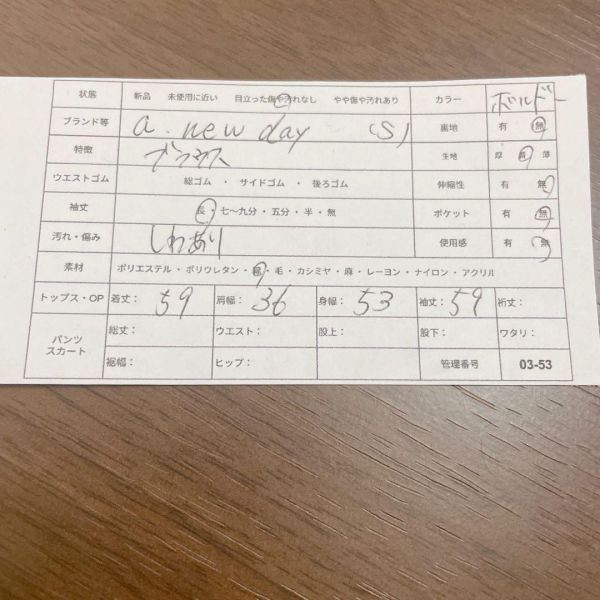 状態 新品 未使用に近い 目立った傷や汚れなし やや傷や汚れあり カラー ボルドー
ブランド等 a.new day (S) 裏地 有 無
特徴 ブラウス 生地 厚 普 薄
ウエストゴム 総ゴム ・ サイドゴム ・ 後ろゴム 伸縮性 有 無
袖丈 長・七〜九分・五分・半・無 ポケット 有 無
汚れ・傷み しわあり 使用感 有 無
素材 ポリエステル・ポリウレタン・綿・毛・カシミヤ・麻・レーヨン・ナイロン・アクリル
トップス・OP 着丈: 59 肩幅: 36 身幅: 53 袖丈: 59 裄丈:
パンツ スカート 総丈: ウエスト: 股上: 股下: ワタリ:
裾幅: ヒップ: 管理番号 03-53